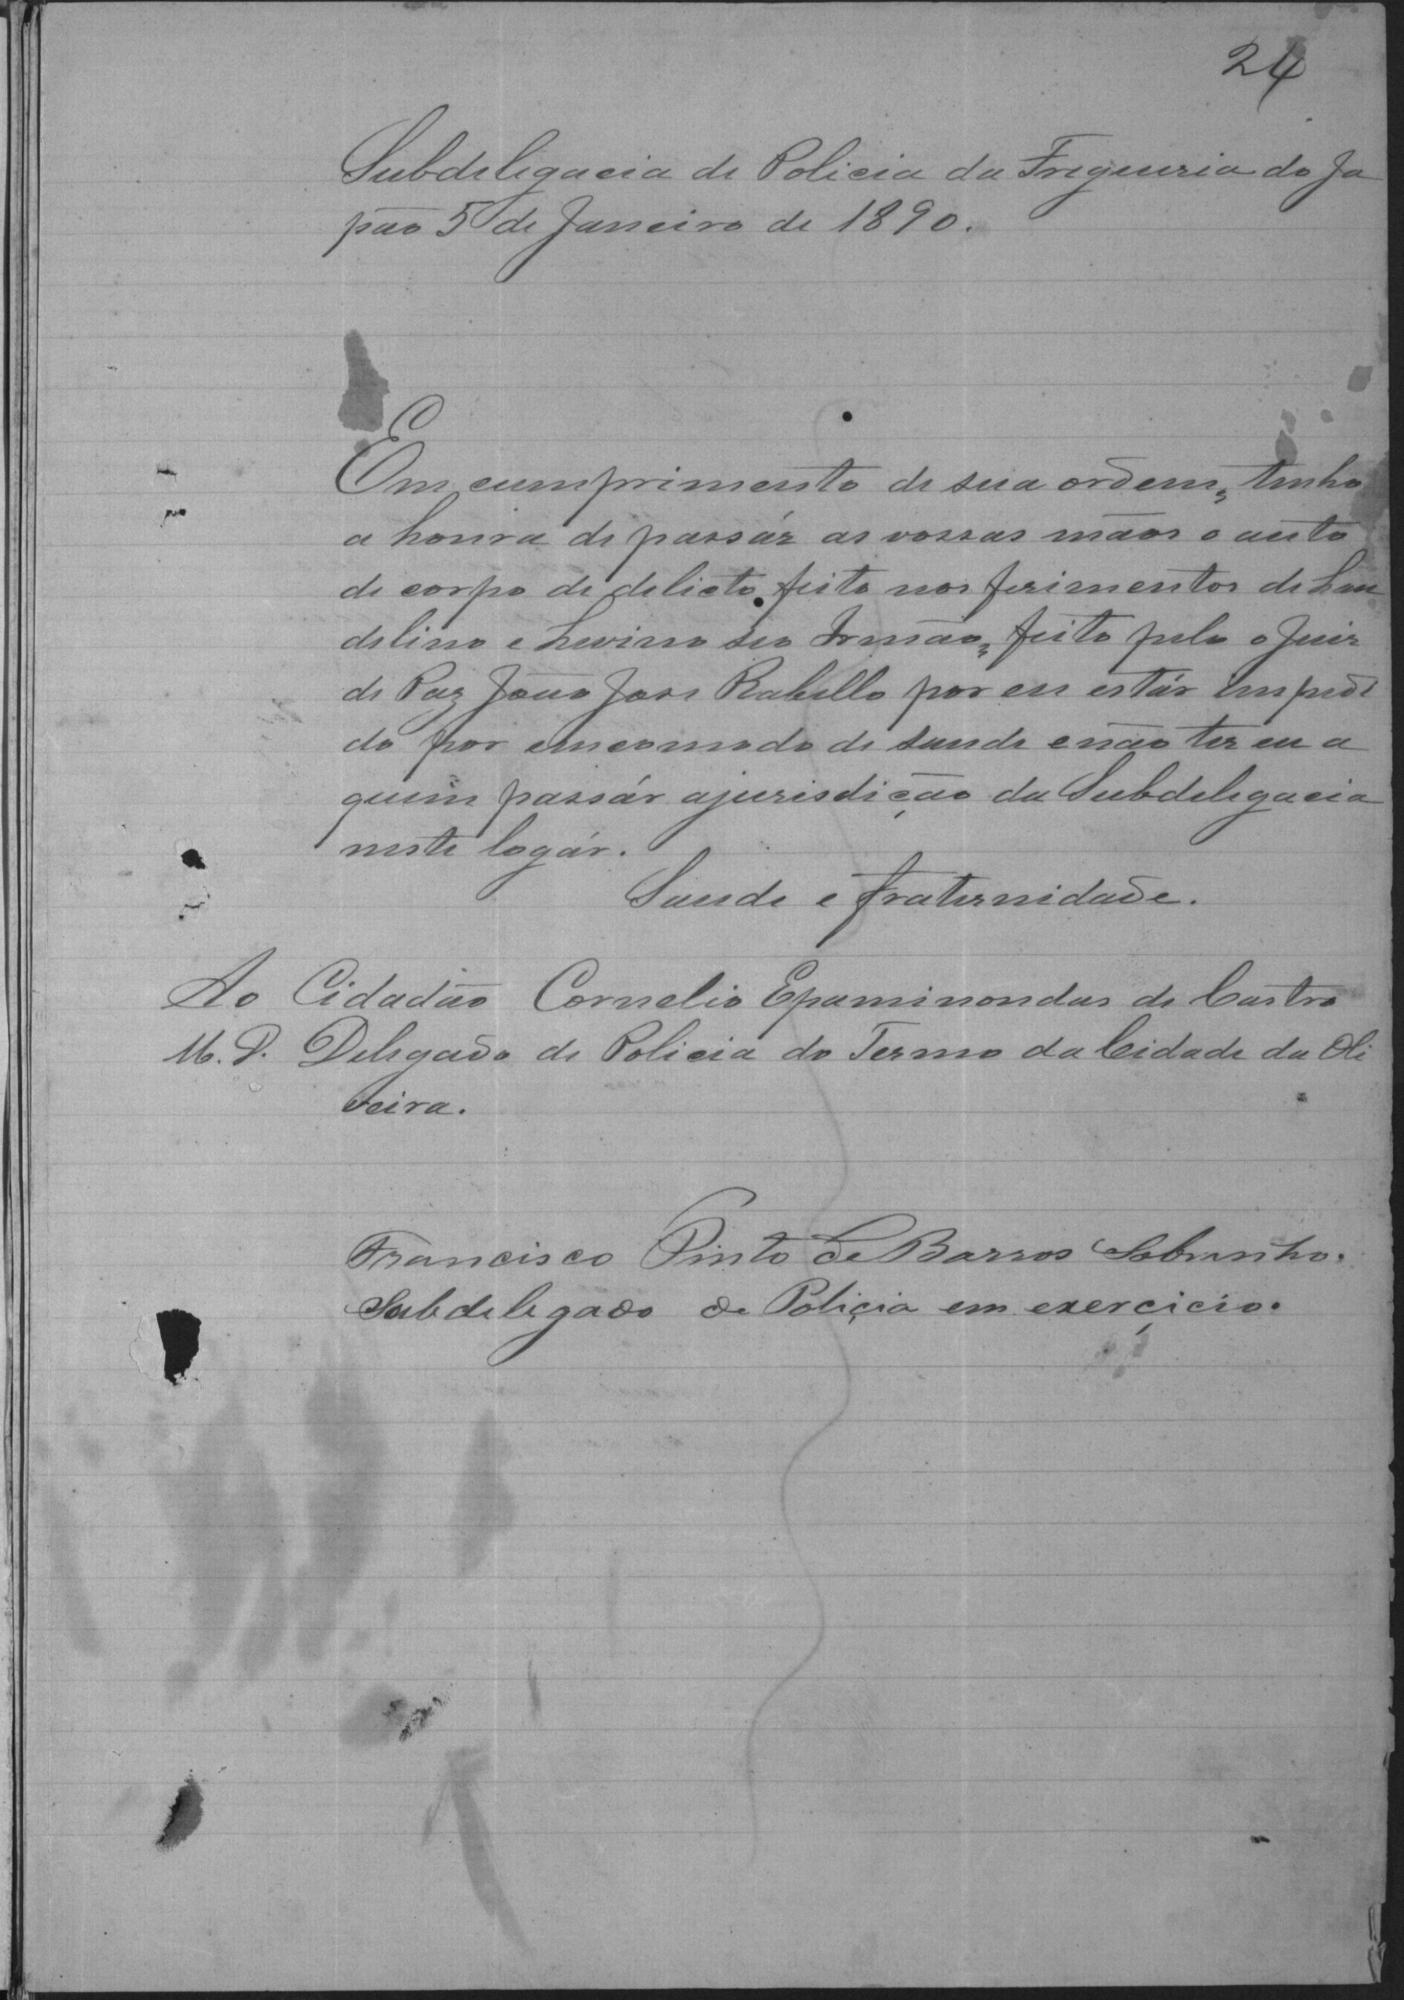 24
Subdelegacia de Policia da Freguezia do Ja
pão 5 de Janeiro de 1890.
Em cumprimento de sua ordem, tenho
a honra de passár as vossas mãos o auto
de corpo de delicto feito nos ferimentos de Lau
delino e Levino seo Irmão, feito pelo o Juiz
de Paz João Jose Rabello por eu estár impedi
do por emcomodo de saude e não ter eu a
quem passár a jurisdicção da Subdelegacia
neste logár.
Saude e fraternidade.
Ao Cidadão Cornelio Epaminondas de Castro
M. D. Delegado de Policia do Termo da Cidade da Oli
veira.
Francisco Pinto de Barros Sobrinho.
Subdelegado de Poliçia em exerçicio.